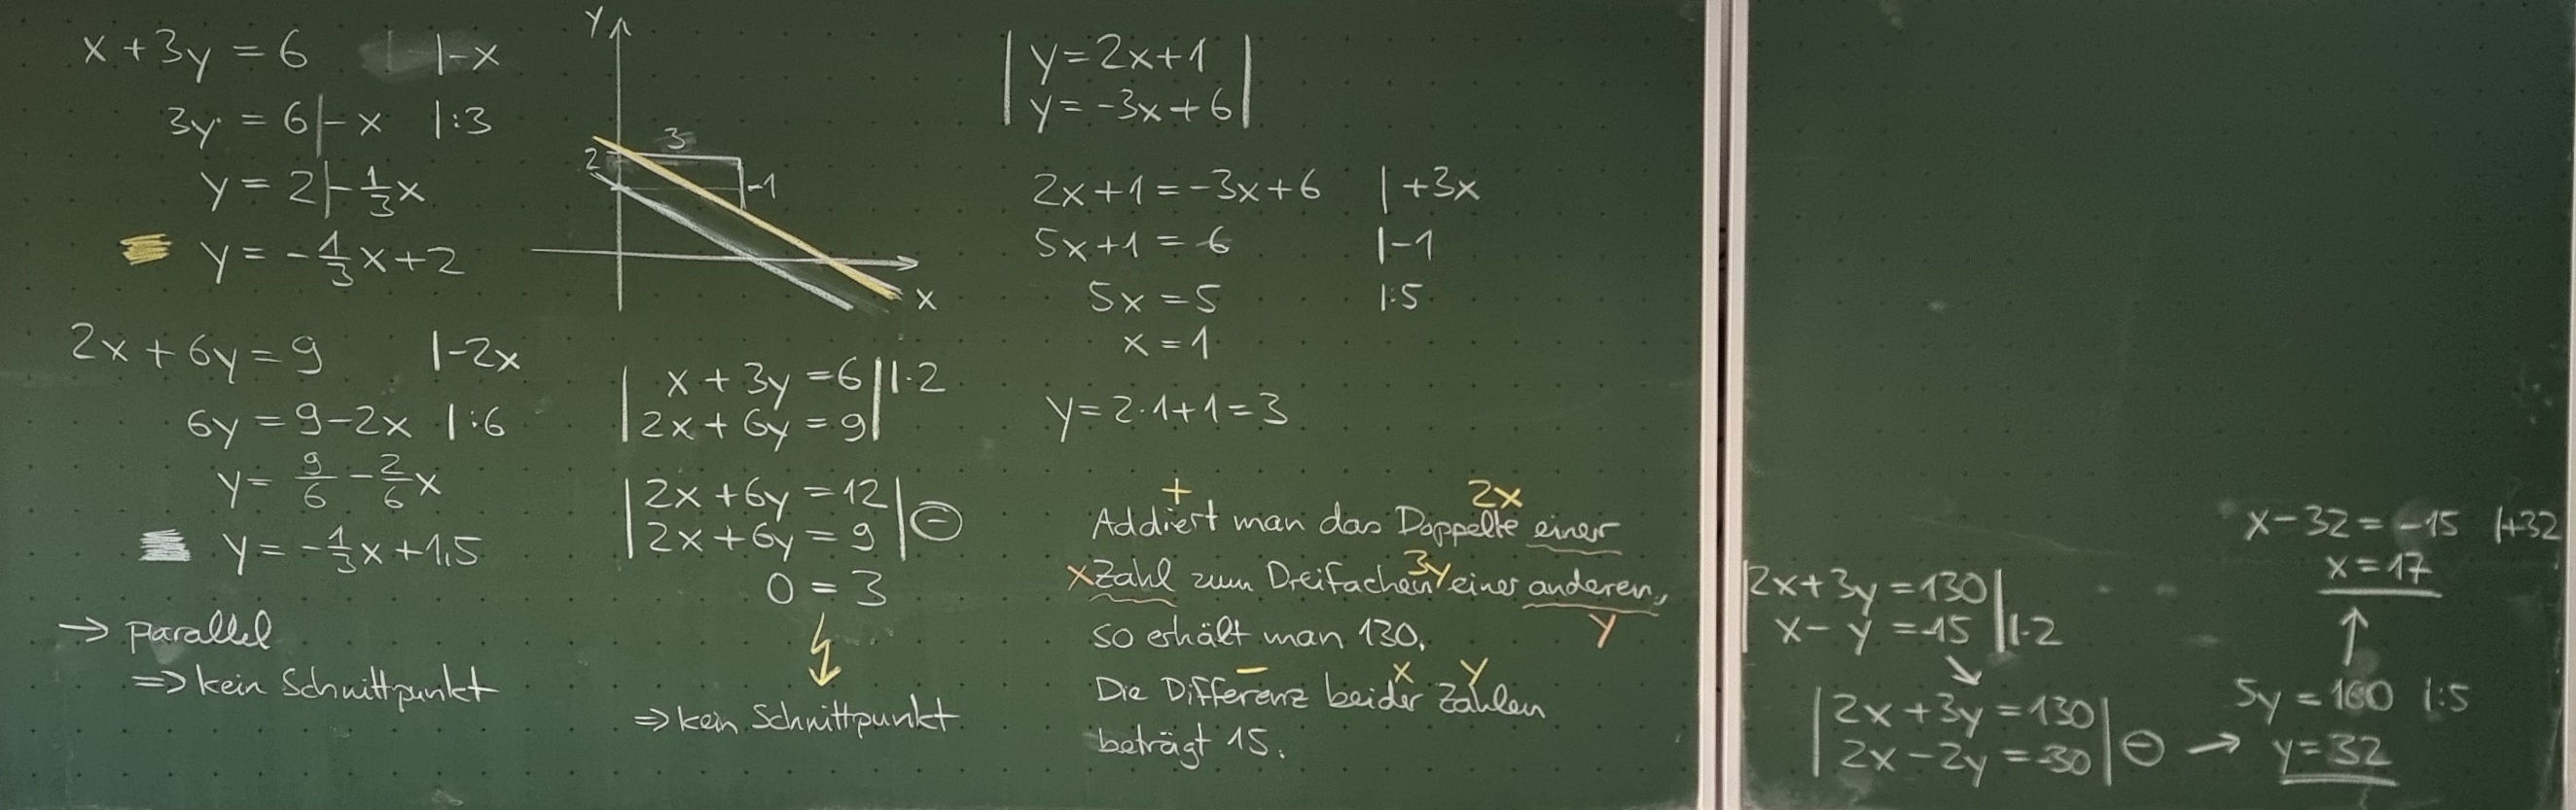 x + 3y = 6 |-x
3y = 6 | - x |:3
y = 2 | - 1/3 x
y = - 1/3 x + 2
2x + 6y = 9 |-2x
6y = 9 - 2x |:6
y = 9/6 - 2/6 x
y = - 1/3 x + 1,5
→ parallel
⇒ kein Schnittpunkt
y
3
2
-1
x
| x + 3y = 6 | |·2
| 2x + 6y = 9 |
| 2x + 6y = 12 |
| 2x + 6y = 9 | ⊖
0 = 3
⇒ kein Schnittpunkt
| y = 2x + 1 |
| y = -3x + 6 |
2x + 1 = -3x + 6 | +3x
5x + 1 = 6 |-1
5x = 5 |:5
x = 1
y = 2·1 + 1 = 3
+ 2x
Addiert man das Doppelte einer
3y
x Zahl zum Dreifachen einer anderen,
y
so erhält man 130.
- x y
Die Differenz beider Zahlen
beträgt 15.
| 2x + 3y = 130 |
| x - y = -15 | |·2
↘
| 2x + 3y = 130 |
| 2x - 2y = -30 | ⊖ →
5y = 160 |:5
y = 32
↑
x - 32 = -15 |+32
x = 17